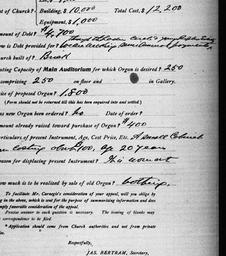 of Church? Building, $10,000 Total Cost, $12,200
Equipment, $1,000
Amount of Debt? $4,700
is Debt provided for?
Church built of? Brick
ting Capacity of Main Auditorium for which Organ is desired? 250
comprising 250 on floor and in Gallery.
rice of proposed Organ? 1,800
(Form should not be returned till this has been inquired into and settled.)
new Organ been ordered? No Date of order?
mount already raised toward purchase of Organ? $400
articulars of present Instrument, Age, Cost Price, Etc. A Small
20 years
reason for displacing present Instrument? It is worn out
ow much is to be realized by sale of old Organ? nothing
To facilitate Mr. Carnegie's consideration of your appeal, will you oblige by
ng in the above, which is sent for the purpose of summarizing information and does
mply favorable consideration of the appeal.
Precise answer to each question is necessary. The issuing of blanks may
correspondence to be filed.
* Application should come from Church authorities and not from private
Respectfully,
JAS. BERTRAM, Secretary,